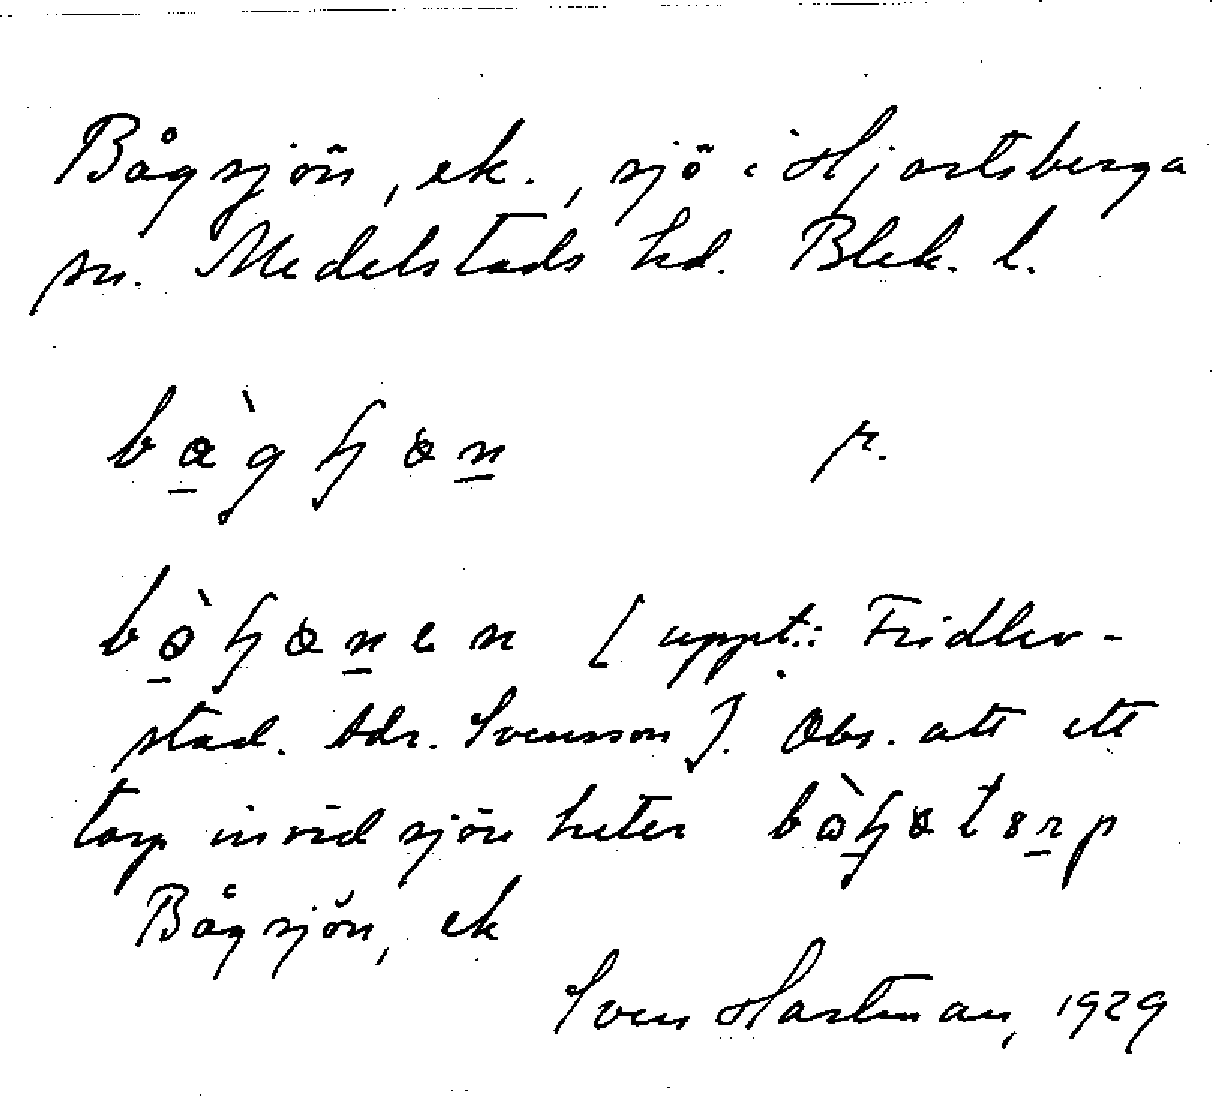 Bågsjön, ek., sjö i Hjortsberga
sn. Medelstads hd. Blek. l.
r.
[uppt.: Fridlev-
stad. Adr. Svensson]. Obs. att ett
torp invid sjön heter
Bågsjön, ek
Sven Hartman, 1929